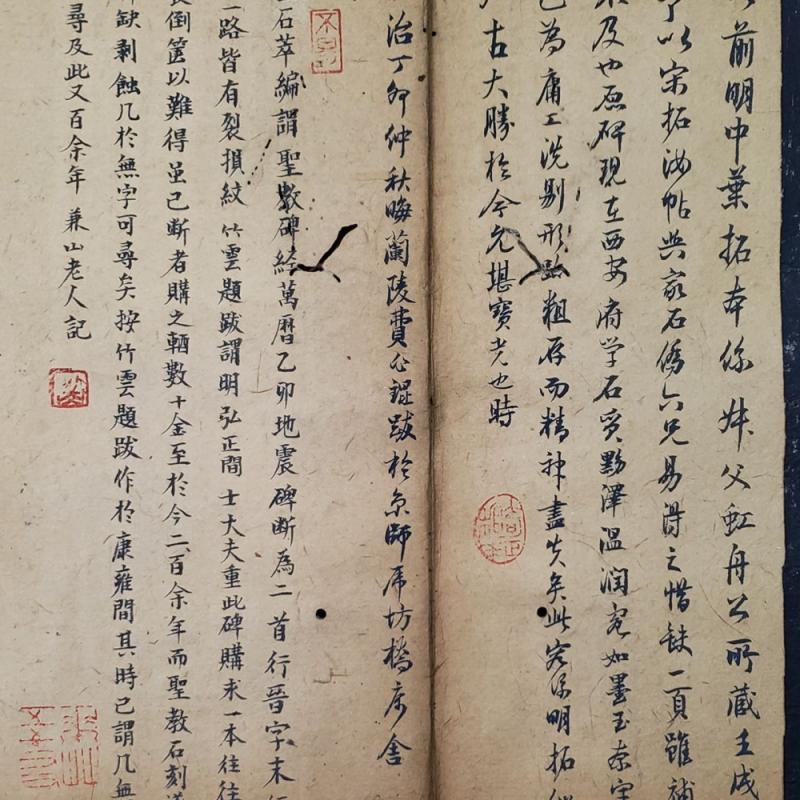 前明中葉拓本係妹父虹舟公所藏壬戌
以宋拓汝帖與家石儒六兄易得之惜缺一頁雖補
及也原碑現在西安府学石質黝澤温潤宛如墨玉奈字
已為庸工洗剔形 粗存而精神盡失矣此 係明拓
古大勝於今尤堪寶 也時
治丁卯仲秋晦蘭陵費 錕跋於京師虎坊橋 舍
石萃編謂聖教碑経萬曆乙卯地震碑断為二首行晉字末
一路皆有裂損紋竹雲題跋謂明弘正間士大夫重此碑購求一本往往
倒篋以難得虽已断者購之輒數十金至於今二百余年而聖教石刻
缺剥蝕几於無字可尋矣按竹雲題跋作於康雍間其時已謂几無
尋及此又百余年兼山老人記